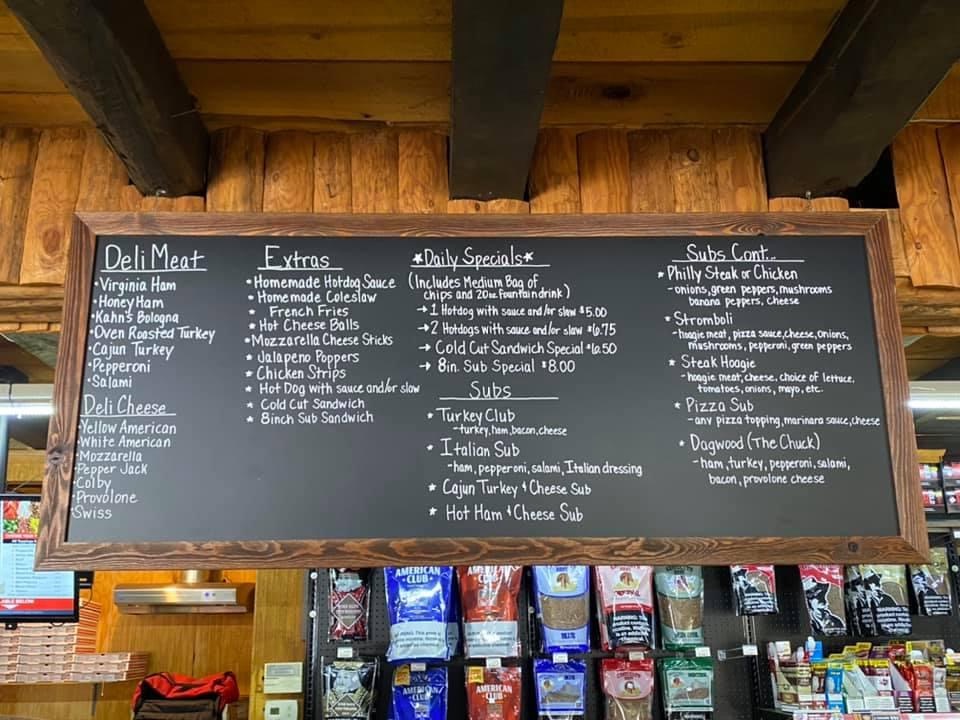 Deli Meat
•Virginia Ham
•Honey Ham
•Kahn's Bologna
•Oven Roasted Turkey
•Cajun Turkey
•Pepperoni
•Salami
Deli Cheese
•Yellow American
•White American
•Mozzarella
•Pepper Jack
•Colby
•Provolone
•Swiss
Extras
•Homemade Hotdog Sauce
•Homemade Coleslaw
• French Fries
•Hot Cheese Balls
•Mozzarella Cheese Sticks
•Jalapeno Poppers
•Chicken Strips
• Hot Dog with sauce and/or slaw
• Cold Cut Sandwich
• 8inch Sub Sandwich
★Daily Specials★
(Includes Medium Bag of
chips and 20oz. fountain drink)
→ 1 Hotdog with sauce and/or slaw $5.00
→2 Hotdogs with sauce and/or slaw $6.75
→ Cold Cut Sandwich Special $6.50
→ 8in. Sub Special $8.00
Subs
* Turkey Club
-turkey, ham, bacon, cheese
* Italian Sub
-ham, pepperoni, salami, Italian dressing
* Cajun Turkey & Cheese Sub
* Hot Ham & Cheese Sub
Subs Cont...
* Philly Steak or Chicken
-onions, green peppers, mushrooms
banana peppers, cheese
* Stromboli
-hoagie meat, pizza sauce, cheese, onions,
mushrooms, pepperoni, green peppers
* Steak Hoagie
-hoagie meat, cheese, choice of lettuce,
tomatoes, onions, mayo, etc.
* Pizza Sub
-any pizza topping, marinara sauce, cheese
* Dagwood (The Chuck)
-ham, turkey, pepperoni, salami,
bacon, provolone cheese
AMERICAN
CLUB
AMERICAN
CLUB
AMERICAN
CLUB
AMERICAN
CLUB